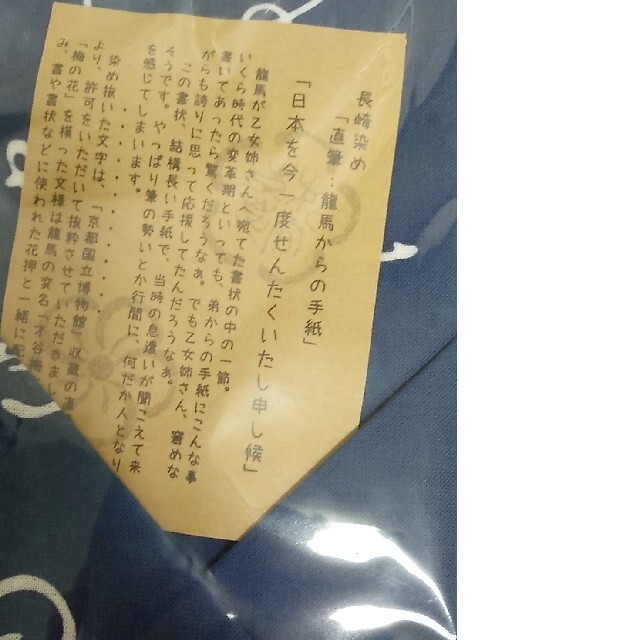 長崎染め
「直筆：龍馬からの手紙」
「日本を今一度せんたくいたし申し候」
龍馬が乙女姉さんへ宛てた書状の中の一節。
いくら時代の変革期といっても、弟からの手紙にこんな事
書いてあったら驚くだろうなぁ。でも乙女姉さん、窘めな
がらも誇りに思って応援してたんだろうなぁ。
この書状、結構長い手紙で、当時の息遣いが聞こえて来
そうです。やっぱり筆の勢いとか行間に、何だか人となり
を感じてしまいます。
・・・・・・・・・・・・
染め抜いた文字は、「京都国立博物館」収蔵の直
より、許可をいただいて抜粋させていただきまし
「梅の花」を模った文様は龍馬の変名「才谷梅
み、書や書状などに使われた花押と一緒に配